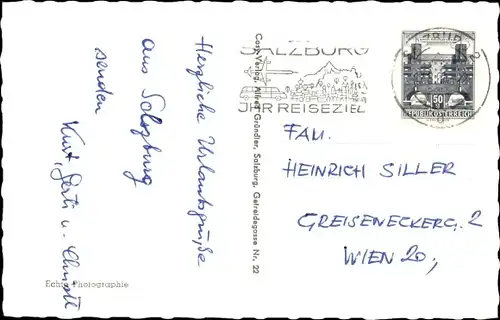 Herzliche Urlaubsgrüße
aus Salzburg
senden
Kurt, Gerti u.
Echte Photographie
Cosy-Verlag, Alfred Gründler, Salzburg, Getreidegasse Nr. 22
SALZBURG
IHR REISEZIEL
50
REPUBLIK ÖSTERREICH
FAM.
HEINRICH SILLER
GREISENECKERG. 2
WIEN 20,